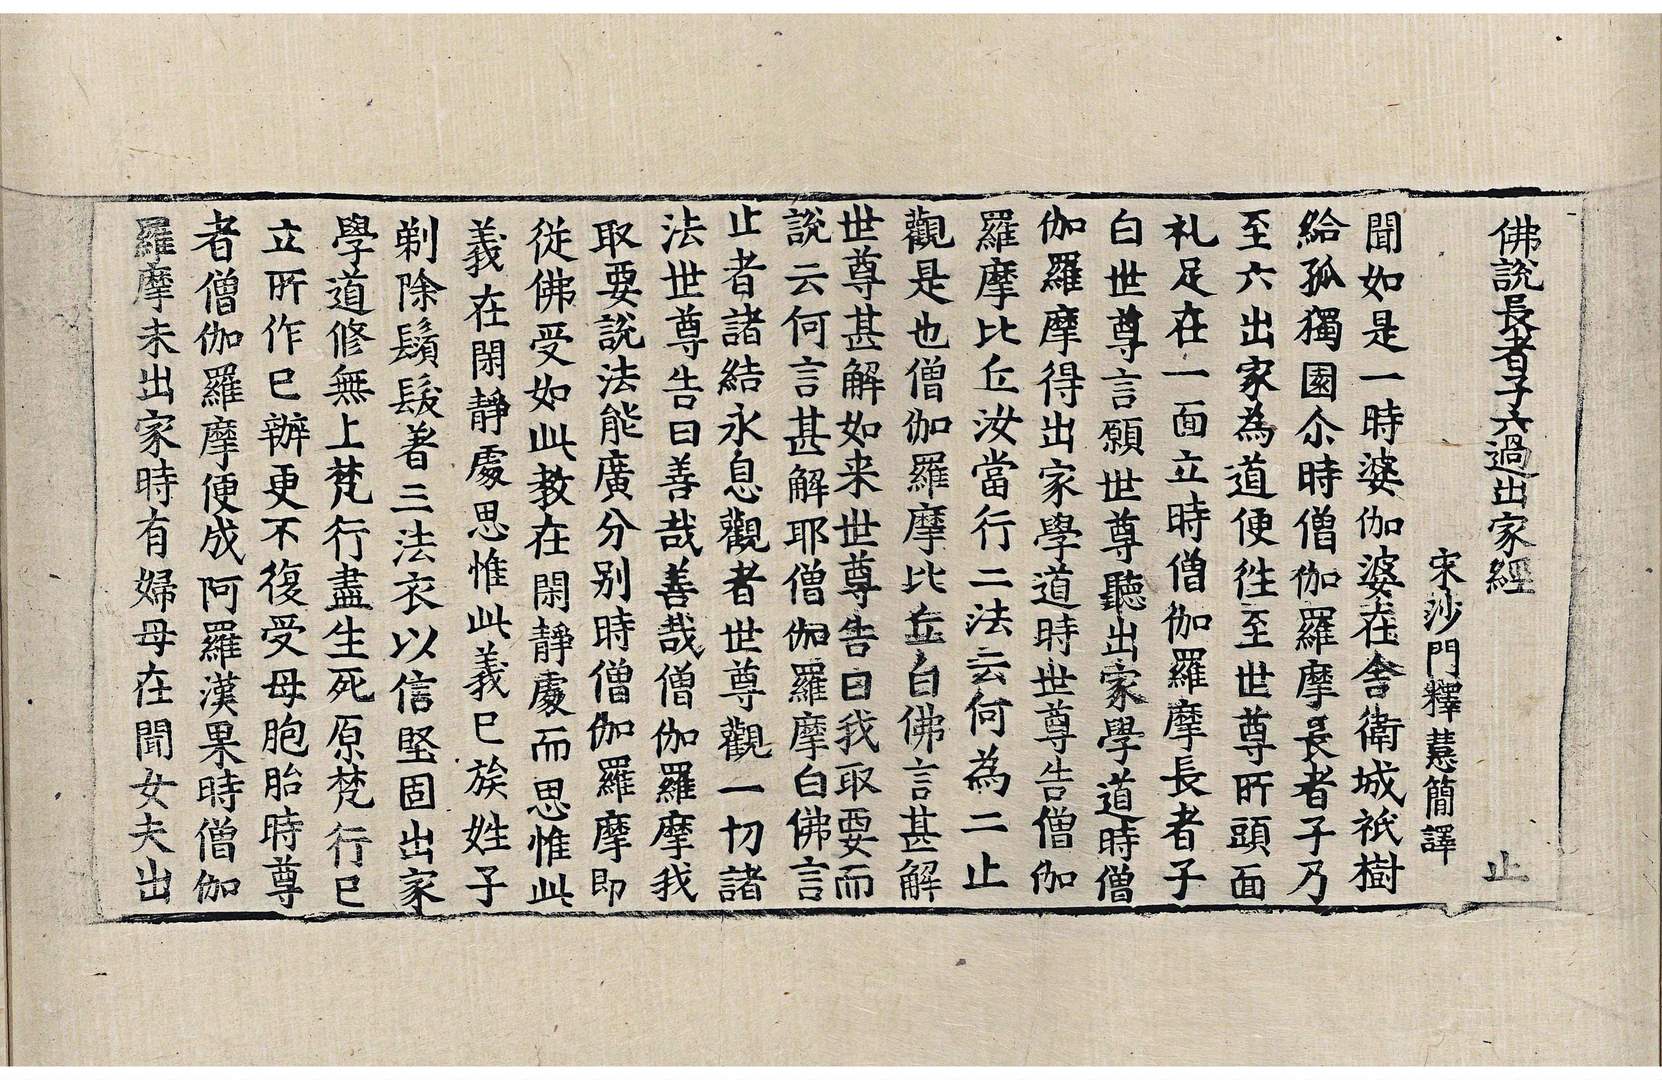 佛說長者子六過出家經
止
宋沙門釋慧簡譯
聞如是一時婆伽婆在舍衛城祇樹
給孤獨園尒時僧伽羅摩長者子乃
至六出家為道便徃至世尊所頭面
礼足在一面立時僧伽羅摩長者子
白世尊言願世尊聽出家學道時僧
伽羅摩得出家學道時世尊告僧伽
羅摩比丘汝當行二法云何為二止
觀是也僧伽羅摩比丘白佛言甚解
世尊甚解如来世尊告曰我取要而
說云何言甚解耶僧伽羅摩白佛言
止者諸結永息觀者世尊觀一切諸
法世尊告曰善哉善哉僧伽羅摩我
取要說法能廣分别時僧伽羅摩即
從佛受如此教在閑靜處而思惟此
義在閑靜處思惟此義已族姓子
剃除鬚髮著三法衣以信堅固出家
學道修無上梵行盡生死原梵行已
立所作已辦更不復受母胞胎時尊
者僧伽羅摩便成阿羅漢果時僧伽
羅摩未出家時有婦母在聞女夫出